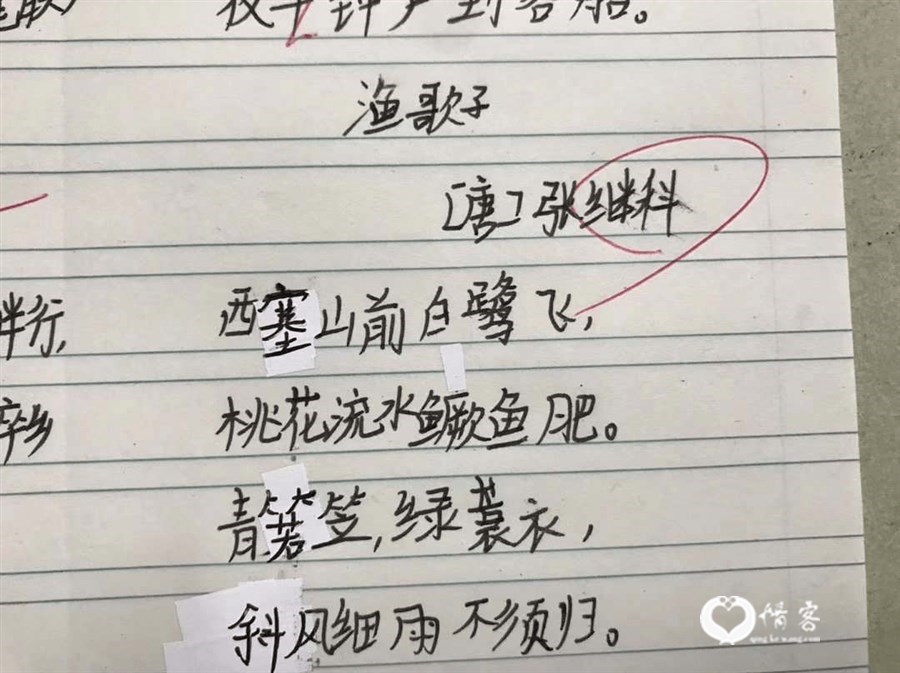 夜半钟声到客船。
渔歌子
[唐]张继科
西塞山前白鹭飞,
桃花流水鳜鱼肥。
青箬笠,绿蓑衣,
斜风细雨不须归。
畔行,
醉乡
情客
qingkewang.com